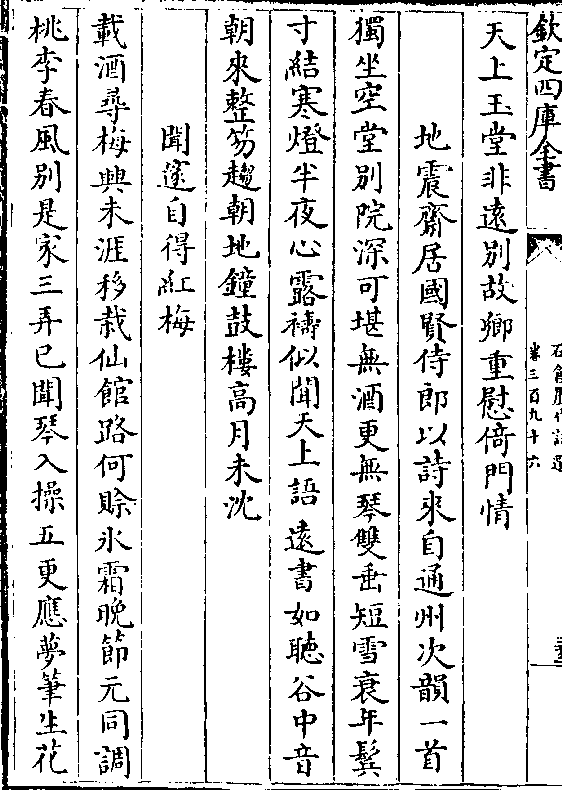 欽定四庫全書
石倉歷代詩選
卷三百九十六
天上玉堂非遠別故鄉重慰倚門情
地震齋居國賢侍郎以詩來自通州次韻一首
獨坐空堂別院深可堪無酒更無琴雙垂短雪衰年鬂
寸結寒燈半夜心露禱似聞天上語遠書如聽谷中音
朝來整笏趨朝地鐘鼓樓高月未沈
聞邃自得紅梅
載酒尋梅興未涯移栽仙館路何賒氷霜晚節元同調
桃李春風別是家三弄已聞琴入操五更應夢筆生花